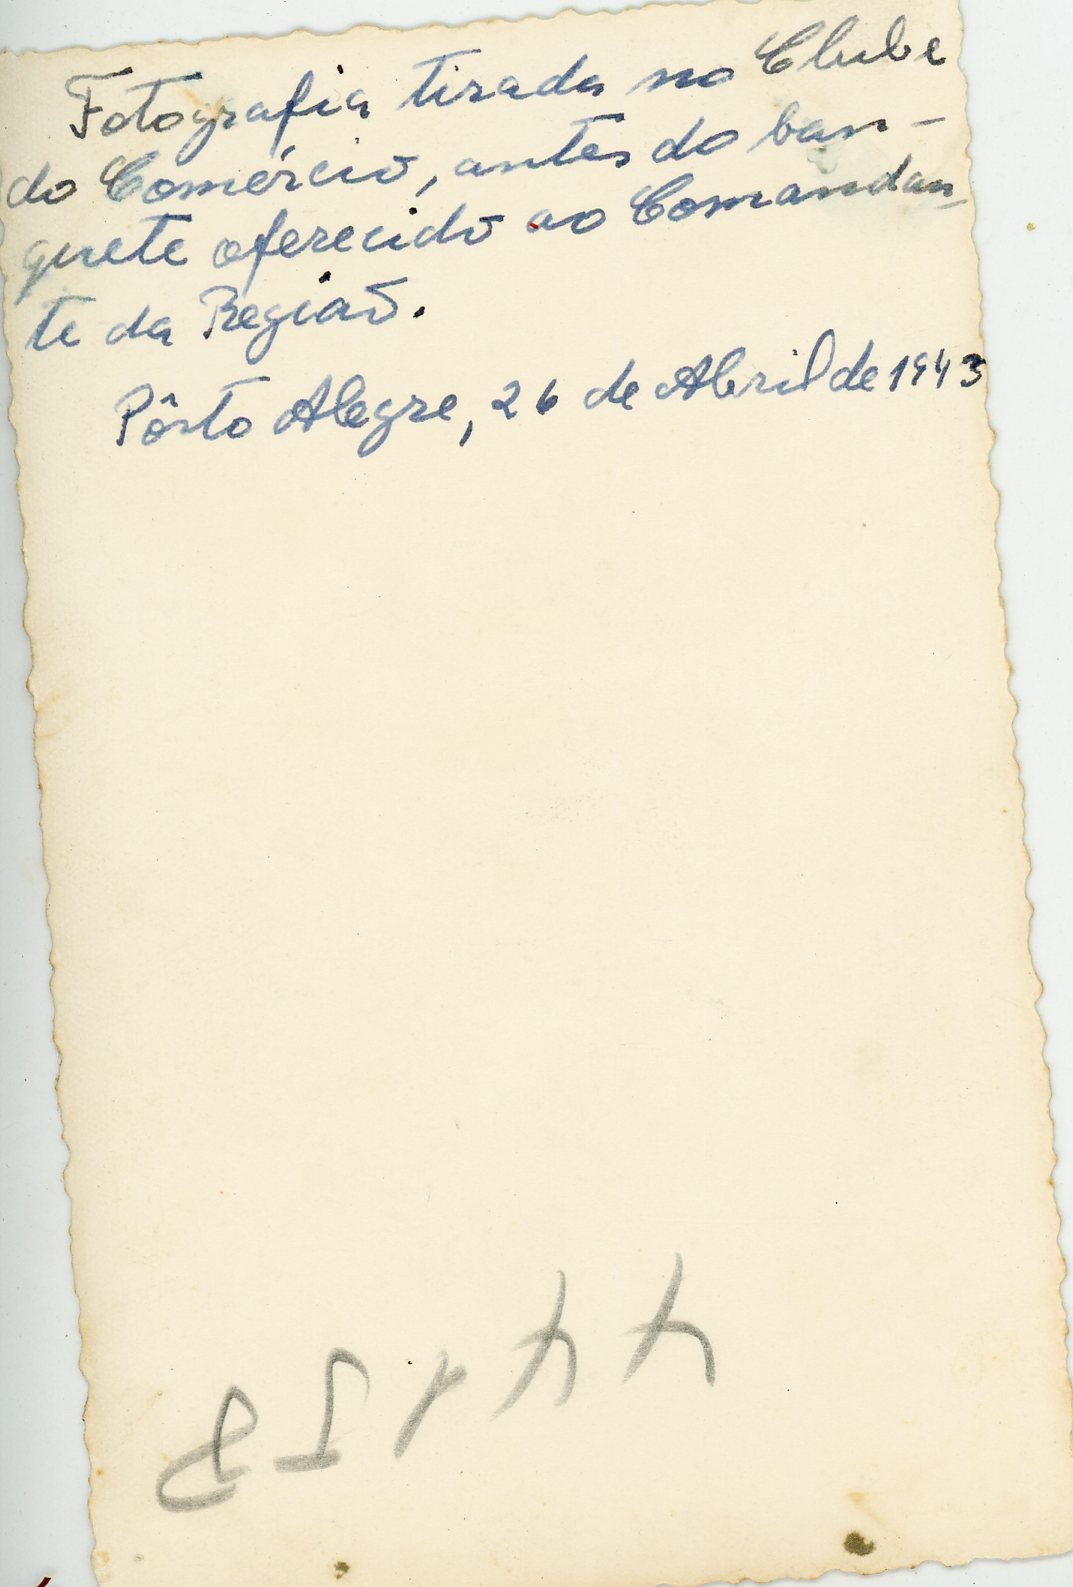 Fotografia tirada no Clube
do Comércio, antes do ban-
quete oferecido ao Comandan-
te da Região.
Pôrto Alegre, 26 de Abril de 1943